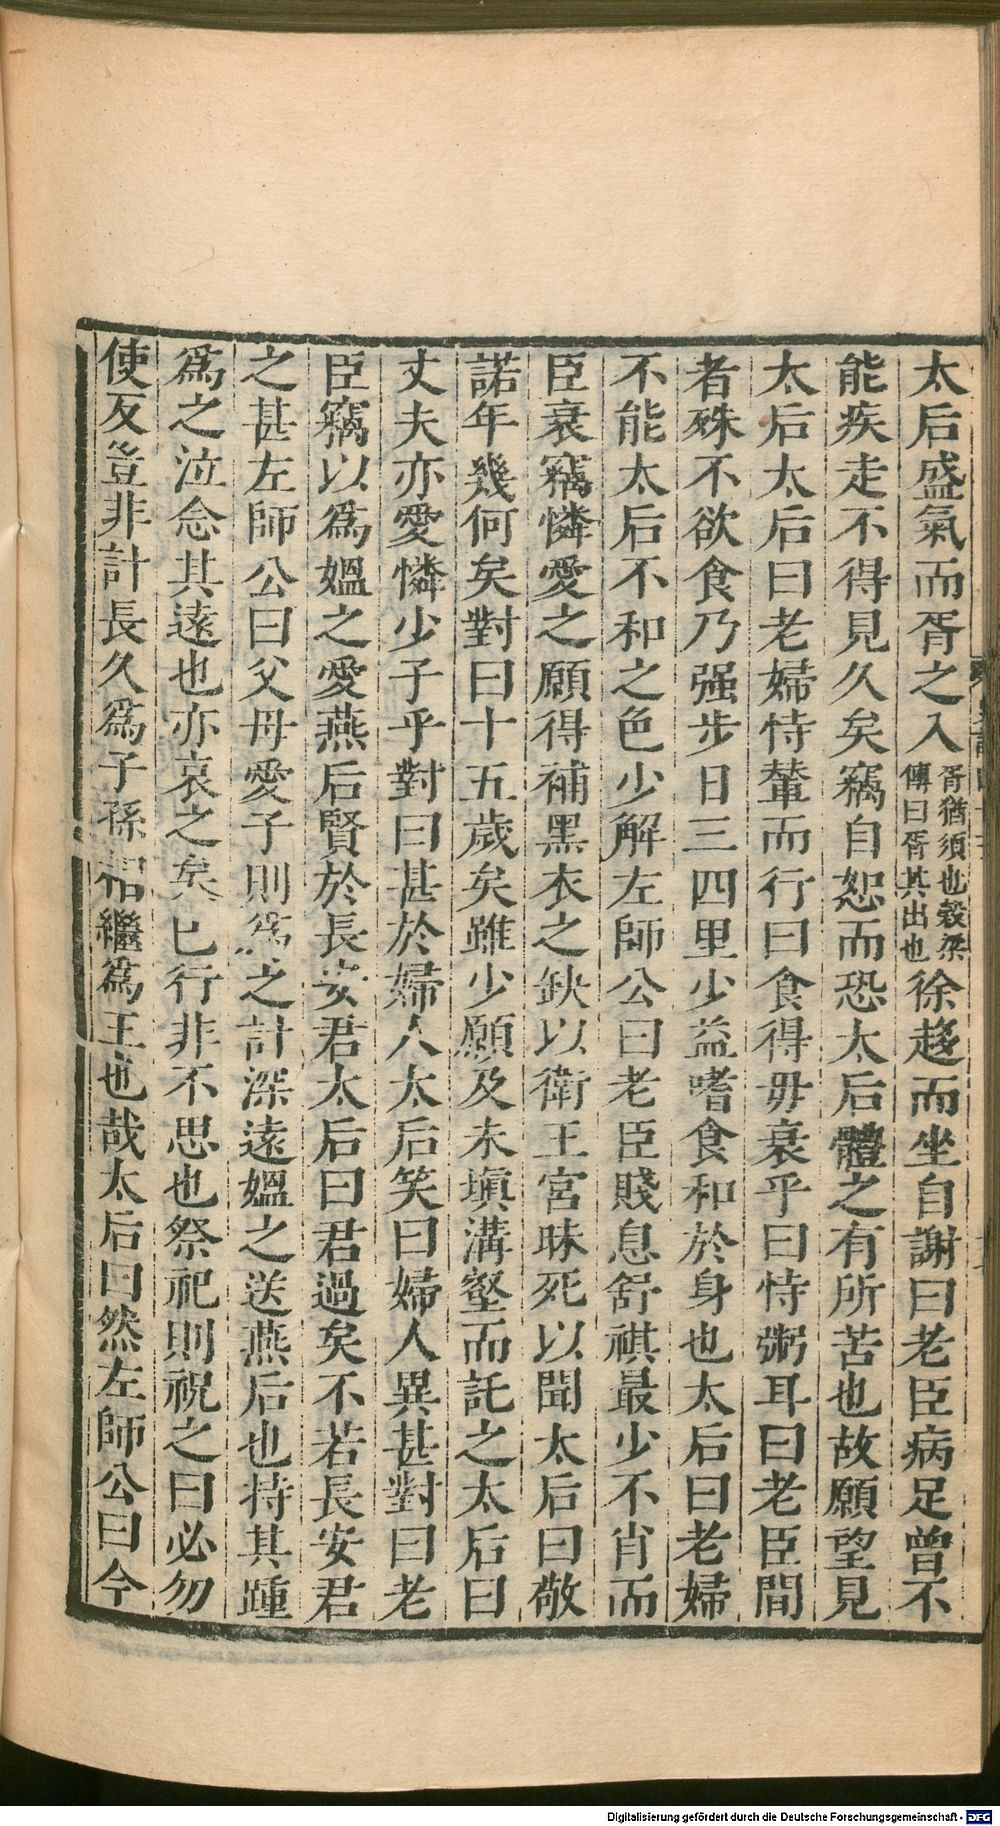 太后盛氣而胥之入胥猶須也穀梁傳曰胥其出也徐趍而坐自謝曰老臣病足曾不
能疾走不得見久矣竊自恕而恐太后體之有所苦也故願望見
太后太后曰老婦恃輦而行曰食得毋衰乎曰恃粥耳曰老臣間
者殊不欲食乃强步日三四里少益嗜食和於身也太后曰老婦
不能太后不和之色少解左師公曰老臣賤息舒祺最少不肖而
臣衰竊憐愛之願得補黑衣之缺以衛王宮昧死以聞太后曰敬
諾年幾何矣對曰十五歲矣雖少願及未塡溝壑而託之太后曰
丈夫亦愛憐少子乎對曰甚於婦人太后笑曰婦人異甚對曰老
臣竊以爲媼之愛燕后賢於長安君太后曰君過矣不若長安君
之甚左師公曰父母愛子則爲之計深遠媼之送燕后也持其踵
爲之泣念其遠也亦哀之矣已行非不思也祭祀則祝之曰必勿
使反豈非計長久爲子孫相繼爲王也哉太后曰然左師公曰今
Digitalisierung gefördert durch die Deutsche Forschungsgemeinschaft - DFG